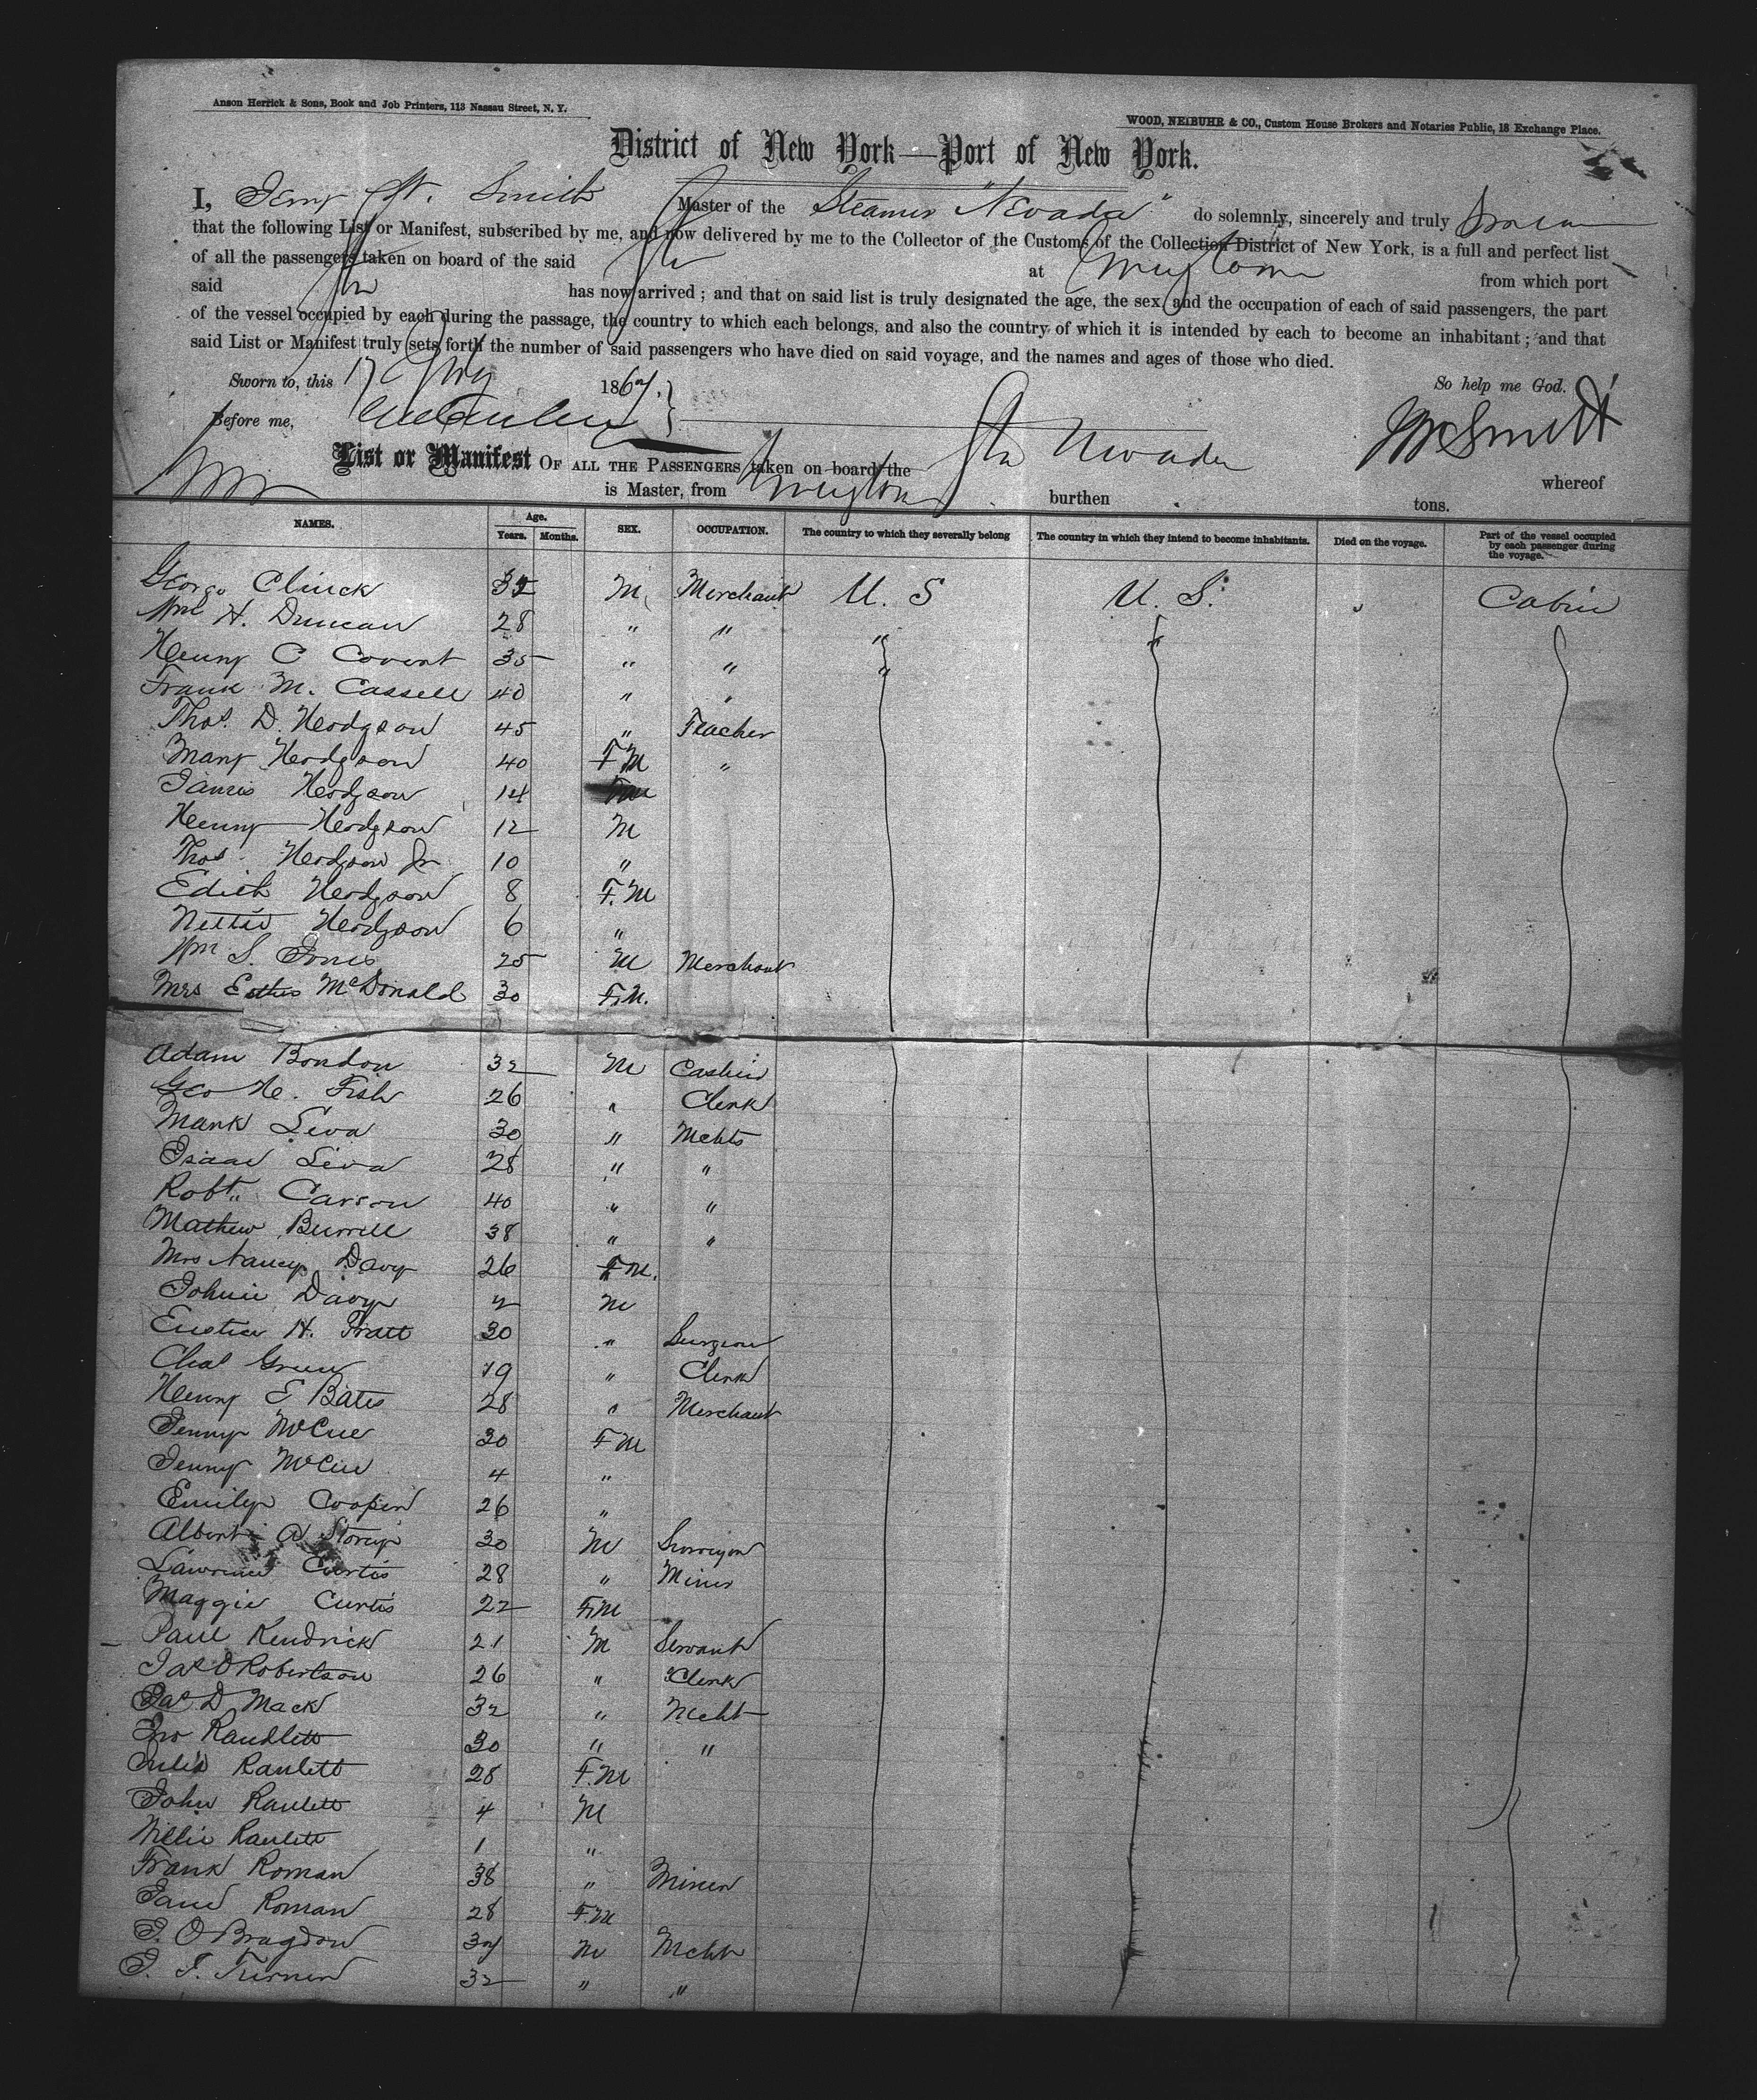 Anson Herrick & Sons, Book and Job Printers, 113 Nassau Street, N. Y.
WOOD, NEIBUHR & CO., Custom House Brokers and Notaries Public, 18 Exchange Place.
District of New York—Port of New York.
I, W. Smith Master of the Steamer "Nevada" do solemnly, sincerely and truly
that the following List or Manifest, subscribed by me, and now delivered by me to the Collector of the Customs of the Collection District of New York, is a full and perfect list
of all the passengers taken on board of the said Str at Greytown from which port
said Str has now arrived ; and that on said list is truly designated the age, the sex, and the occupation of each of said passengers, the part
of the vessel occupied by each during the passage, the country to which each belongs, and also the country of which it is intended by each to become an inhabitant ; and that
said List or Manifest truly sets forth the number of said passengers who have died on said voyage, and the names and ages of those who died.
Sworn to, this 17 186 So help me God.
Before me,
List or Manifest OF ALL THE PASSENGERS taken on board the Str Nevada whereof
is Master, from Greytown burthen tons.
NAMES. Age. Years. Months. SEX. OCCUPATION. The country to which they severally belong The country in which they intend to become inhabitants. Died on the voyage. Part of the vessel occupied by each passenger during the voyage.
George Clinck M Merchant U. S U. S. Cabin
Wm H. Duncan 28 " " "
Henry C Covert 35 " " "
Frank M. Cassell 40 " "
Thos. D. Hodgson 45 " Teacher
Mary Hodgson 40 F M "
James Hodgson 14
Henry Hodgson 12 M
Thos. Hodgson Jr 10 "
Edith Hodgson 8 F. M
Nettie Hodgson 6 "
Wm S. Jones 25 M Merchant
Mrs Esther McDonald 30 F. M.
Adam Bondon 32 M Cashier
Geo H. Fish 26 " Clerk
Mark Leva 30 " Mchts
Isaac Leva 28 " "
Robt. Carson 40 " "
Mathew Burrell 38 " "
Mrs Nancy Davy 26 F M.
Johnie Davy 2 M
H. Pratt 30 " Surgeon
Chas Green 19 " Clerk
Henry E Bates 28 " Merchant
Jenny McCue 30 F M
Jenny McCue 4 "
Emily Cooper 26 "
Albert Storey 30 M
Lawrence Curtis 28 " Miner
Maggie Curtis 22 F M
Paul Kendrick 21 M Servant
Jas D Robertson 26 " Clerk
Jas D Mack 32 " Mcht
Jno Randlett 30 " "
Julia Ranlett 28 F. M
John Ranlett 4 M
Willie Ranlett 1 "
Frank Roman 38 " Miner
Jane Roman 28 F. M
J. O Bragdon M Mcht
J. T. Turner 32 " "